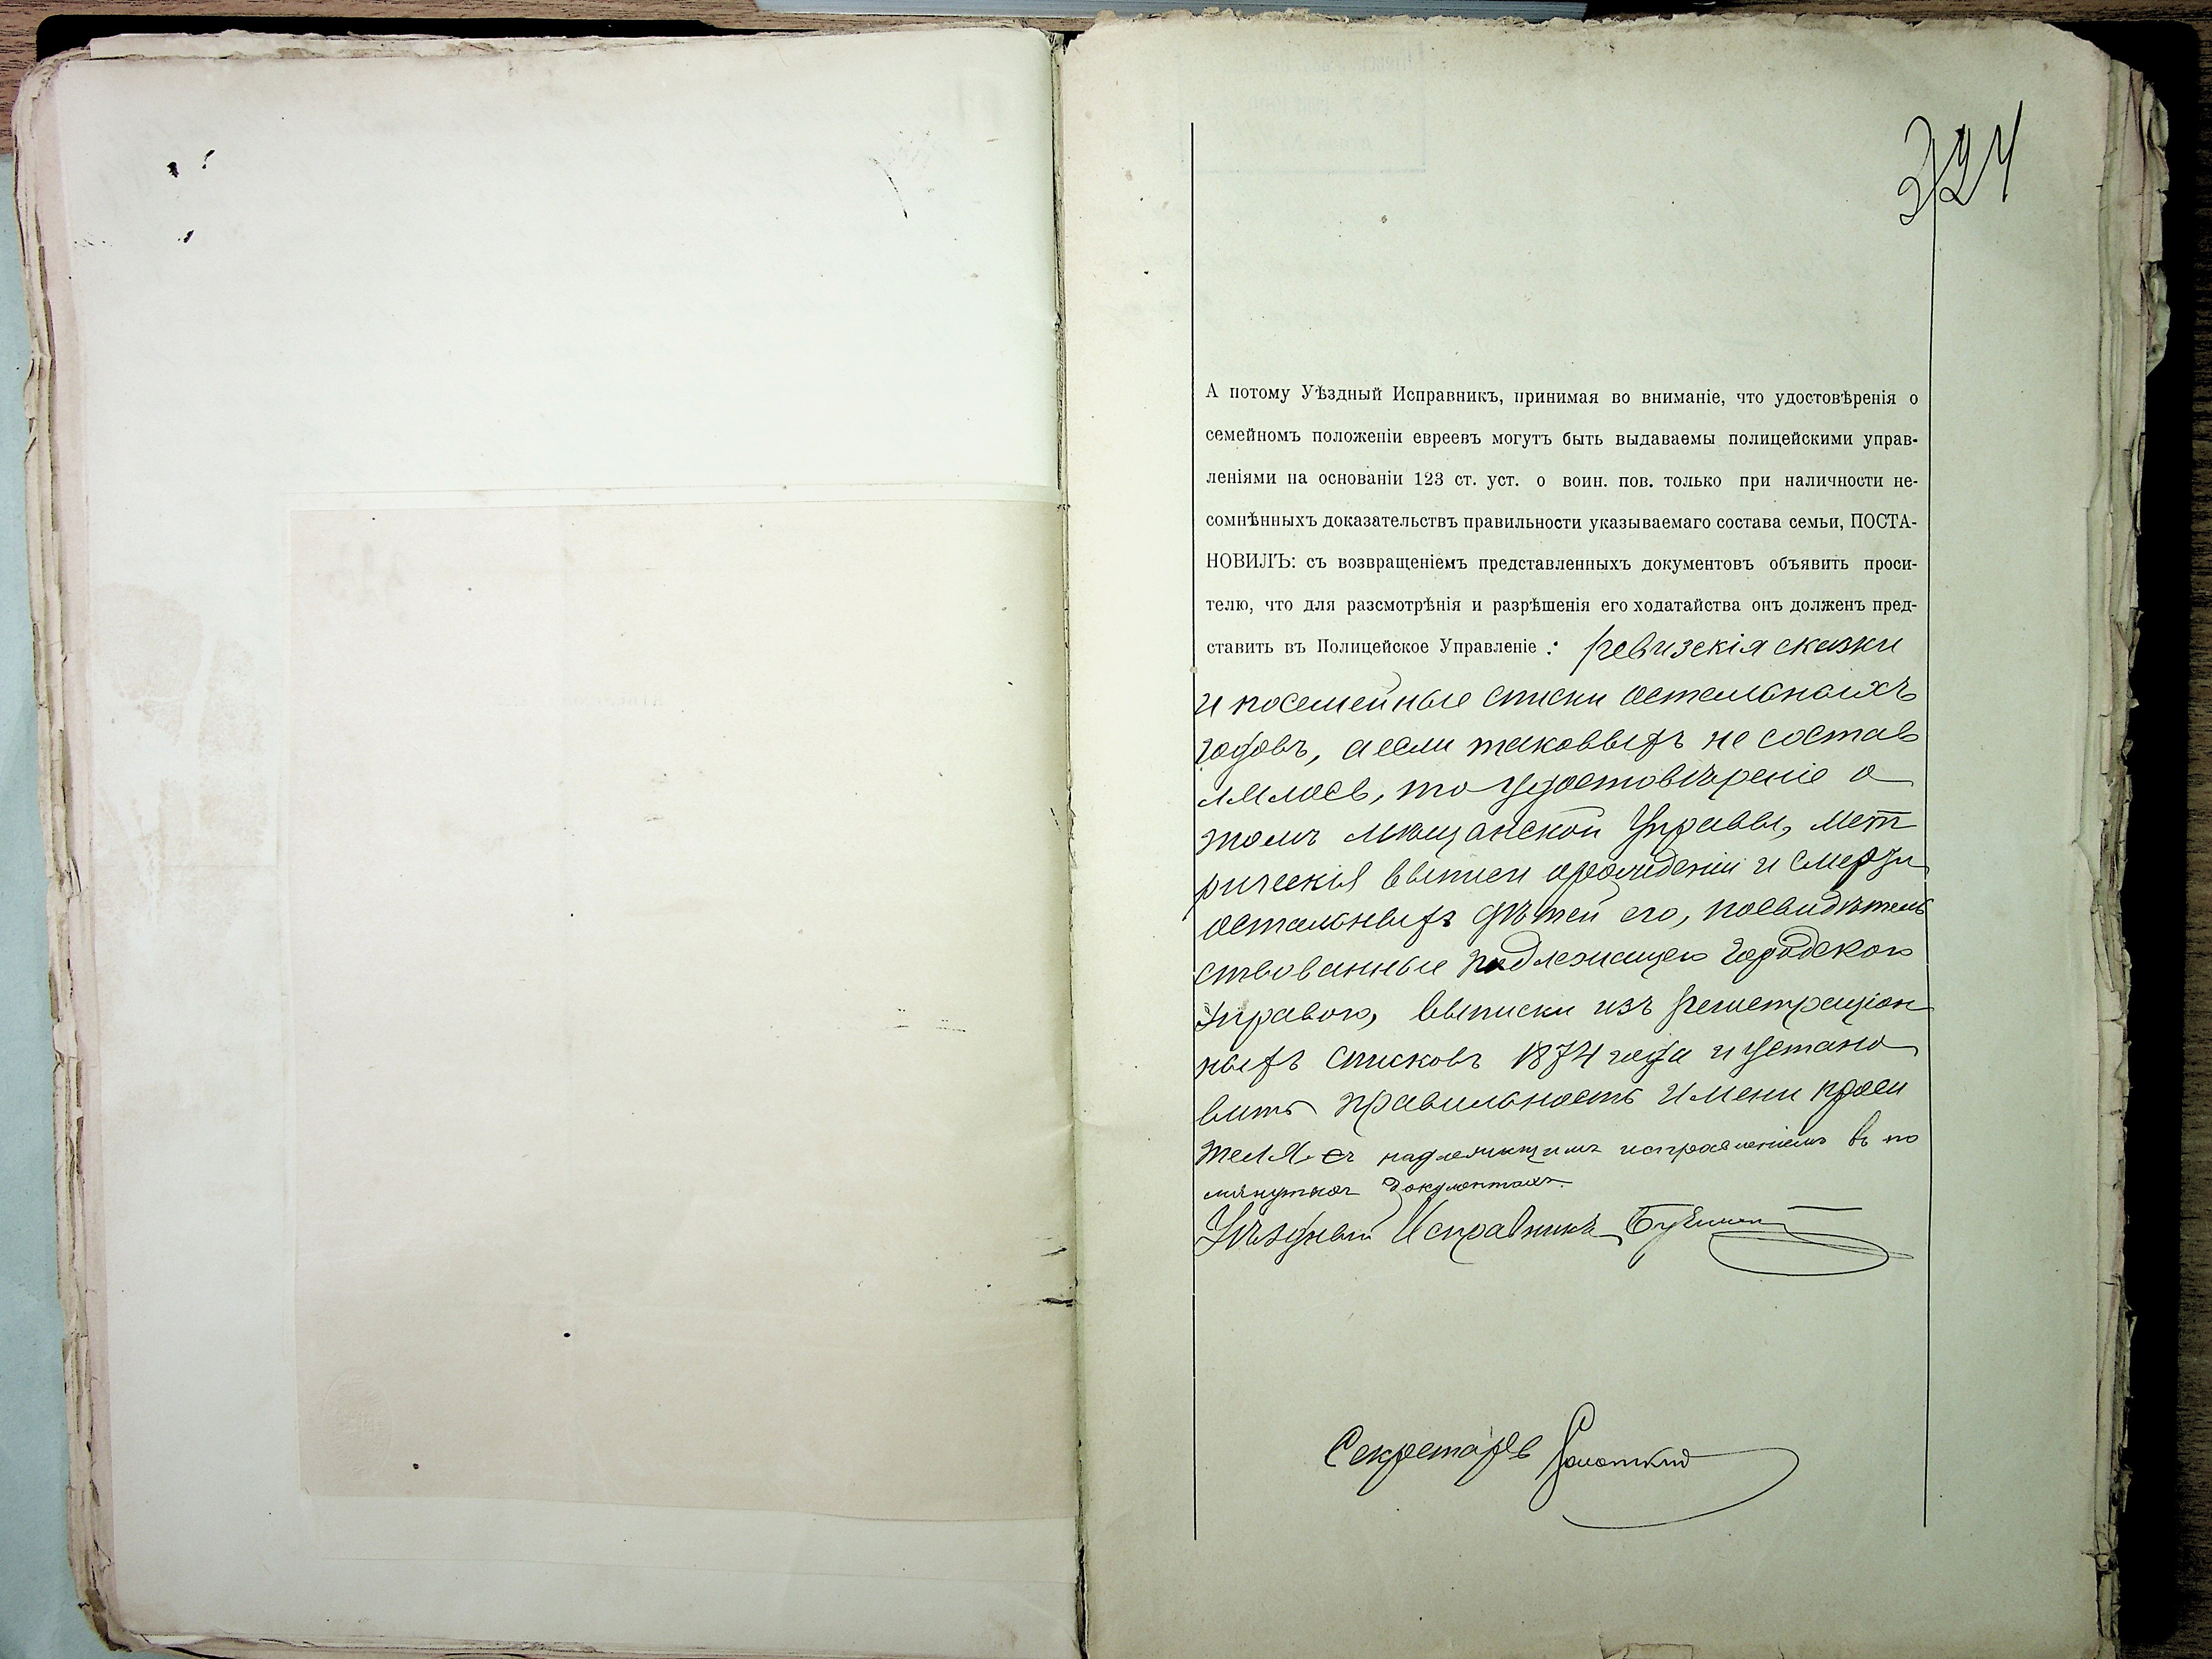 324
А потому Уѣздный Исправникъ, принимая во вниманіе, что удостовѣренія о
семейномъ положеніи евреевъ могутъ быть выдаваемы полицейскими управ-
леніями на основаніи 123 ст. уст. о воин. пов. только при наличности не-
сомнѣнныхъ доказательствъ правильности указываемаго состава семьи, ПОСТА-
НОВИЛЪ: съ возвращеніемъ представленныхъ документовъ объявить проси-
телю, что для разсмотрѣнія и разрѣшенія его ходатайства онъ долженъ пред-
ставить въ Полицейское Управленіе: ревизскія сказки
и посемейные списки остальныхъ
годовъ, а если таковыхъ не состав
лялось, то удостовѣреніе о
томъ мѣщанской Управы, мет
рическія выписи о рожденіи и смерти
остальныхъ дѣтей его, посвидѣтель
ствованные надлежащею городскою
Управою, выписки изъ регистраціон
ныхъ списковъ 1874 года и устано
вить правильность имени проси
теля съ надлежащимъ исправленіемъ въ по
мянутыхъ документахъ.
Уѣздный Исправникъ
Секретарь